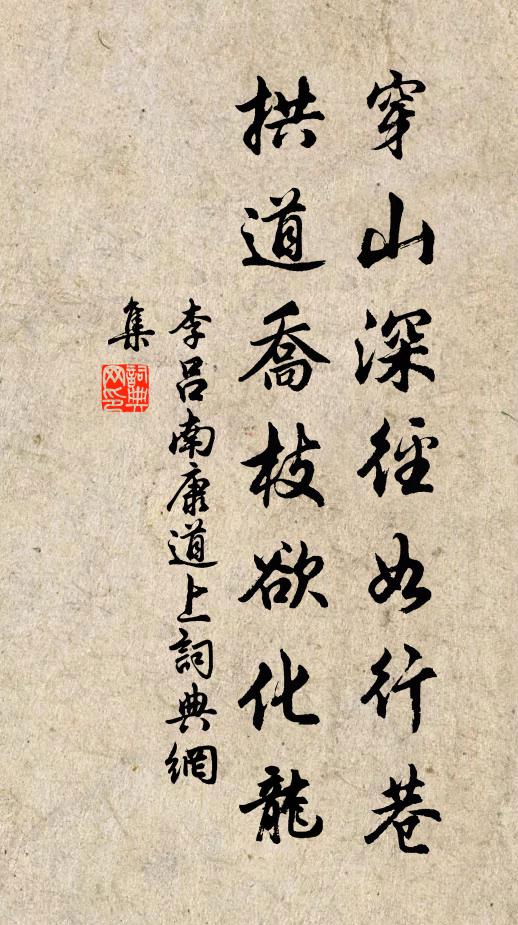 穿山深徑如行巷
拱道喬枝欲化龍
李呂南康道上詞典網
集
詞典
网印